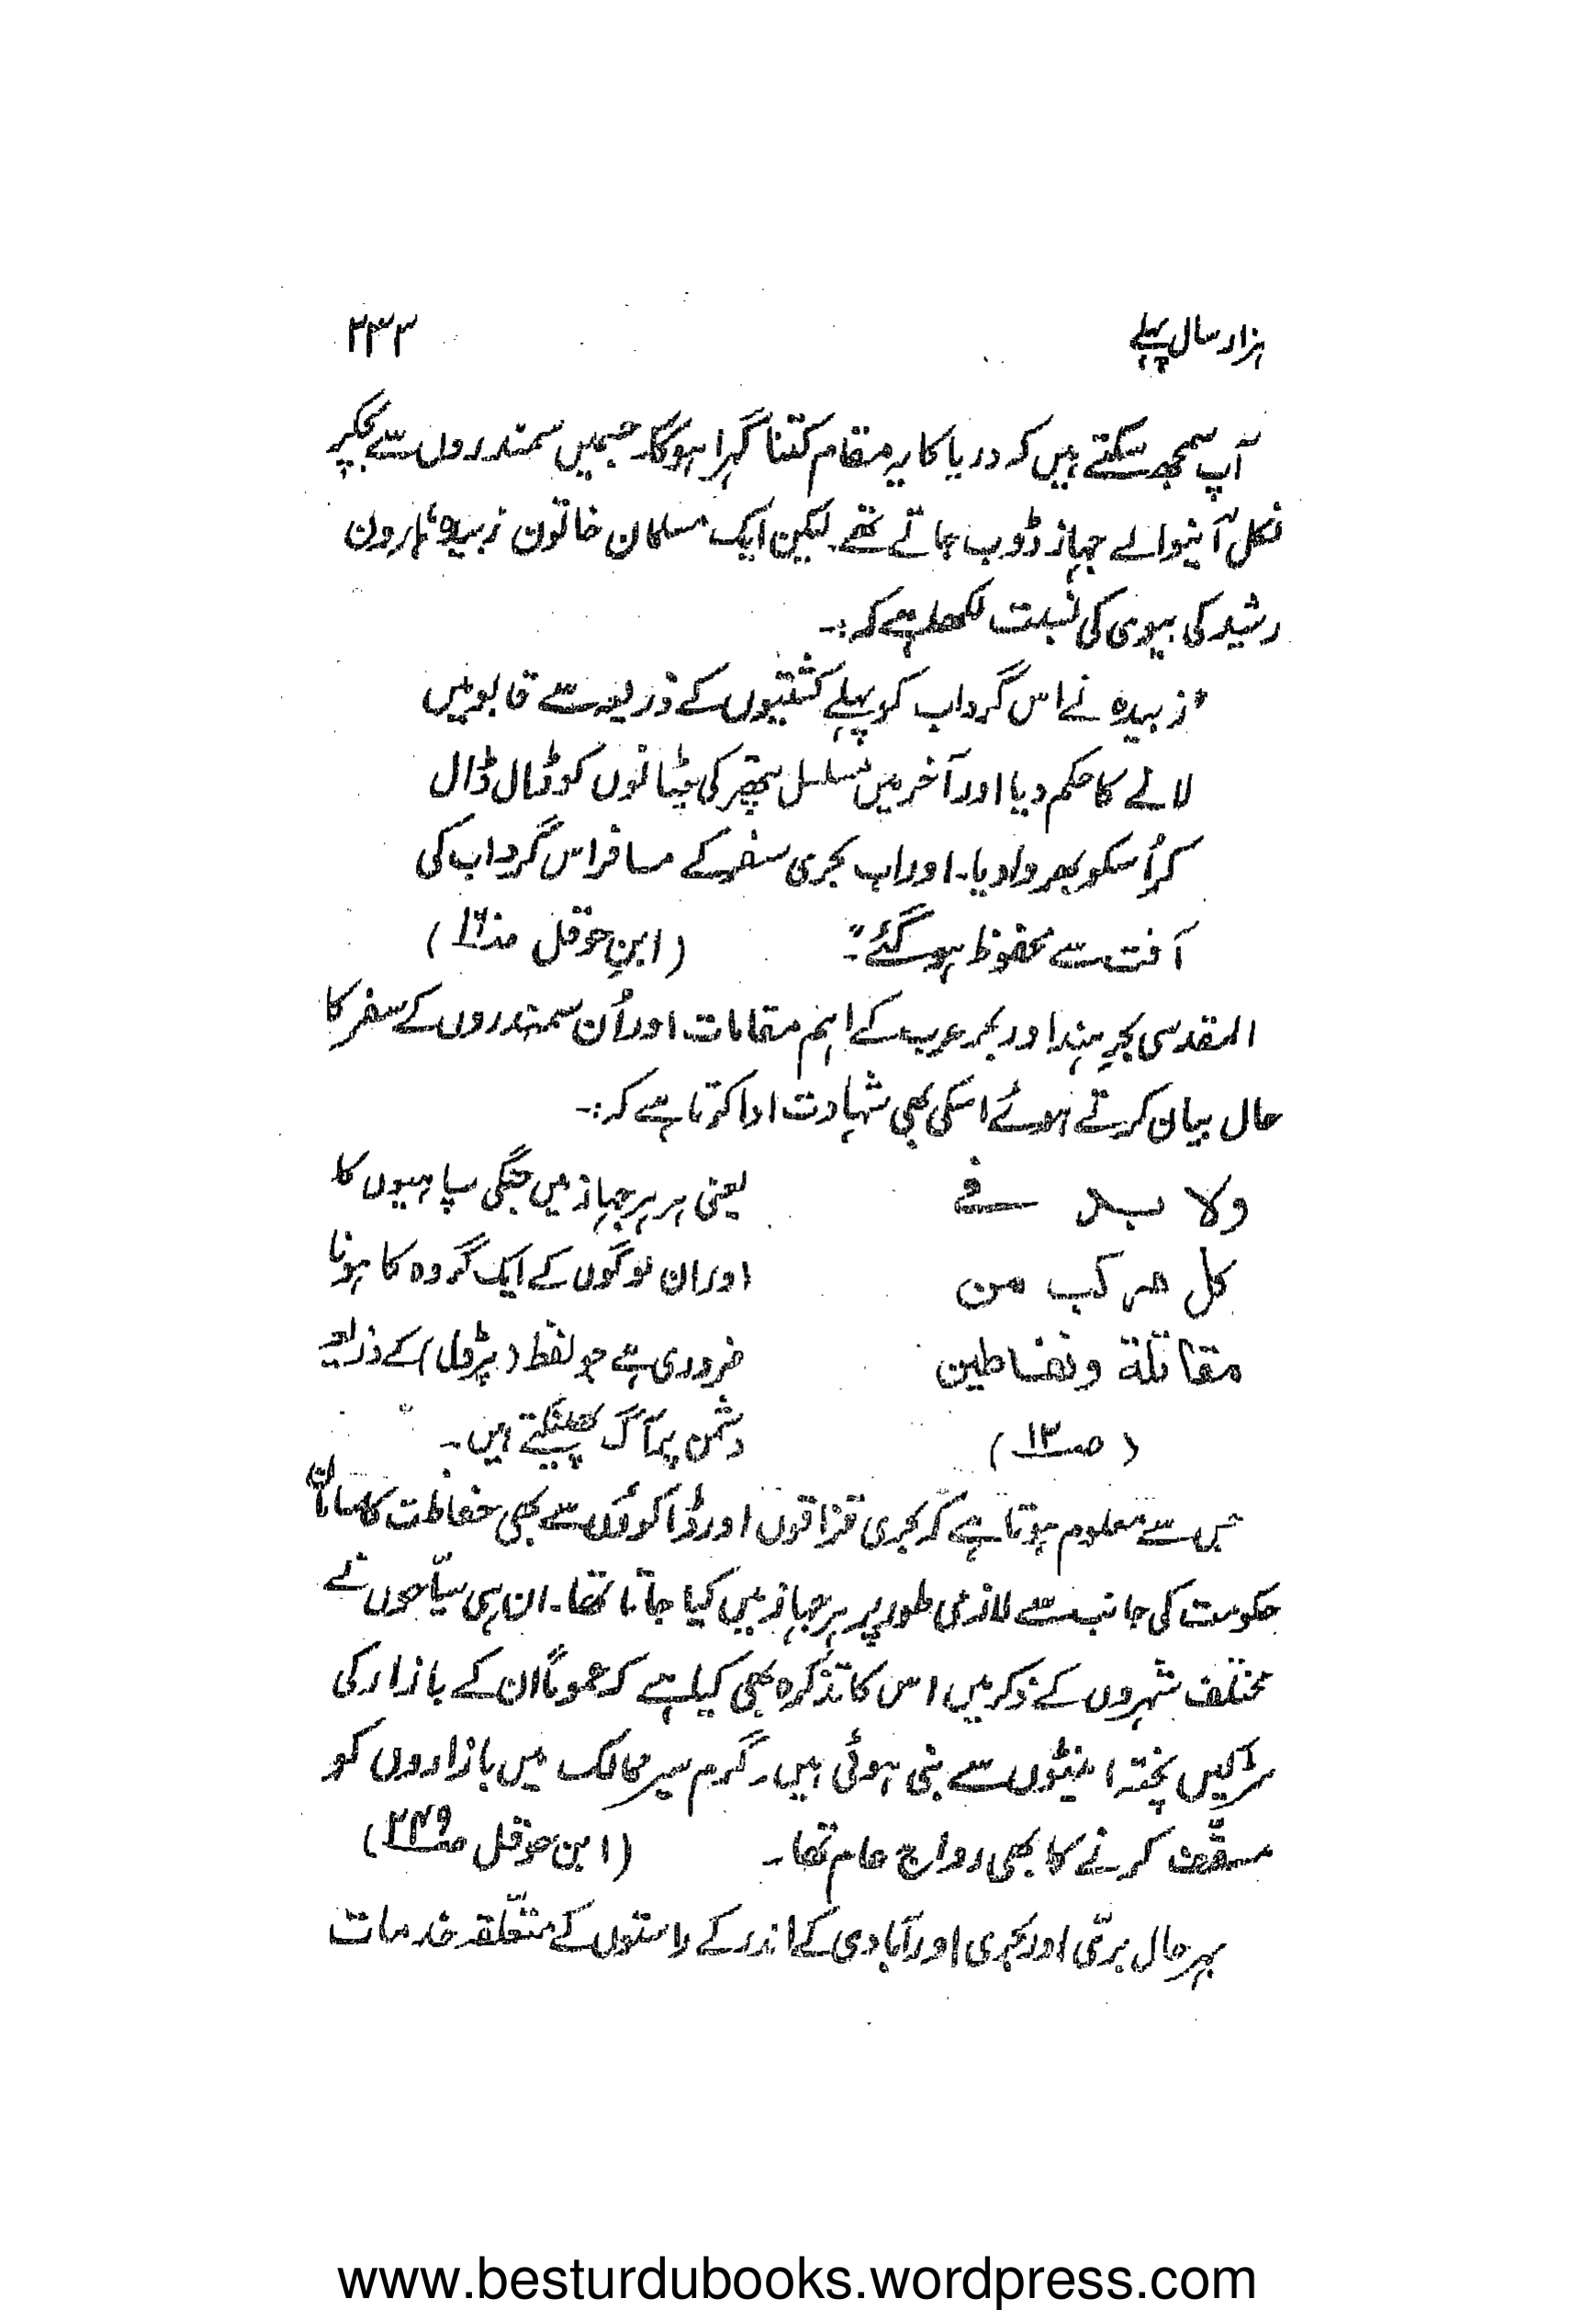 ہزار سال پہلے
۲۳۳
آپ سمجھ سکتے ہیں کہ دریا کا یہ مقام کتنا گہرا ہوگا۔ جسمیں سمندروں سے بچکر
نکل آنیوالے جہاز ڈوب جاتے تھے۔ لیکن ایک مسلمان خاتون زبیدہ ہارون
رشید کی بیوی کی نسبت لکھا ہے کہ :۔
"زبیدہ نے اس گرداب کو پہلے کشتیوں کے ذریعہ سے قابو میں
لانے کا حکم دیا اور آخر میں مسلسل پتھر کی چٹانوں کو ڈال ڈال
کر اُسکو بھروا دیا۔ اور اب بحری سفر کے مسافر اس گرداب کی
آفت سے محفوظ ہو گئے۔" (ابنِ حوقل
المقدسی بحرِ ہند اور بحر عرب کے اہم مقامات اور اُن سمندروں کے سفر کا
حال بیان کرتے ہوئے اسکی بھی شہادت ادا کرتا ہے کہ :۔
ولا بد فی
کل مرکب من
مقاتلۃ ونفاطین
(صـ۱۲)
یعنی ہر ہر جہاز میں جنگی سپاہیوں کا
اور ان لوگوں کے ایک گروہ کا ہونا
ضروری ہے جو نفط (پٹرول) کے ذریعہ
دشمن پر آگ پھینکتے ہیں۔
جس سے معلوم ہوتا ہے کہ بحری قزاقوں اور ڈاکوؤں سے بھی حفاظت کا سامان
حکومت کی جانب سے لازمی طور پر ہر جہاز میں کیا جاتا تھا۔ ان ہی سیّاحوں نے
مختلف شہروں کے ذکر میں اس کا تذکرہ بھی کیا ہے کہ عموماً ان کے بازار کی
سڑکیں پختہ اینٹوں سے بنی ہوئی ہیں۔ گرم سیر ممالک میں بازاروں کو
مسقّف کرنے کا بھی رواج عام تھا۔ (ابن حوقل صـ۲۴۹)
بہرحال برّی اور بحری اور آبادی کے اندر کے راستوں کے متعلّقہ خدمات
www.besturdubooks.wordpress.com